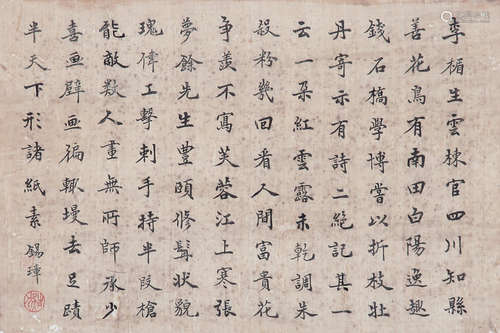 李楣生雲棟官四川知縣
善花鳥有南田白陽逸趣
錢石槁學博嘗以折枝牡
丹寄示有詩二絶記其一
云一朵紅雲露未乾調朱
殺粉幾回看人間富貴花
争羨不寫芙蓉江上寒張
夢餘先生豊頤修髯狀貌
瑰偉工擊刺手持半段槍
能敵数人畫無所師承少
喜画壁画徧輙墁去足蹟
半天下形諸紙素 錫璋